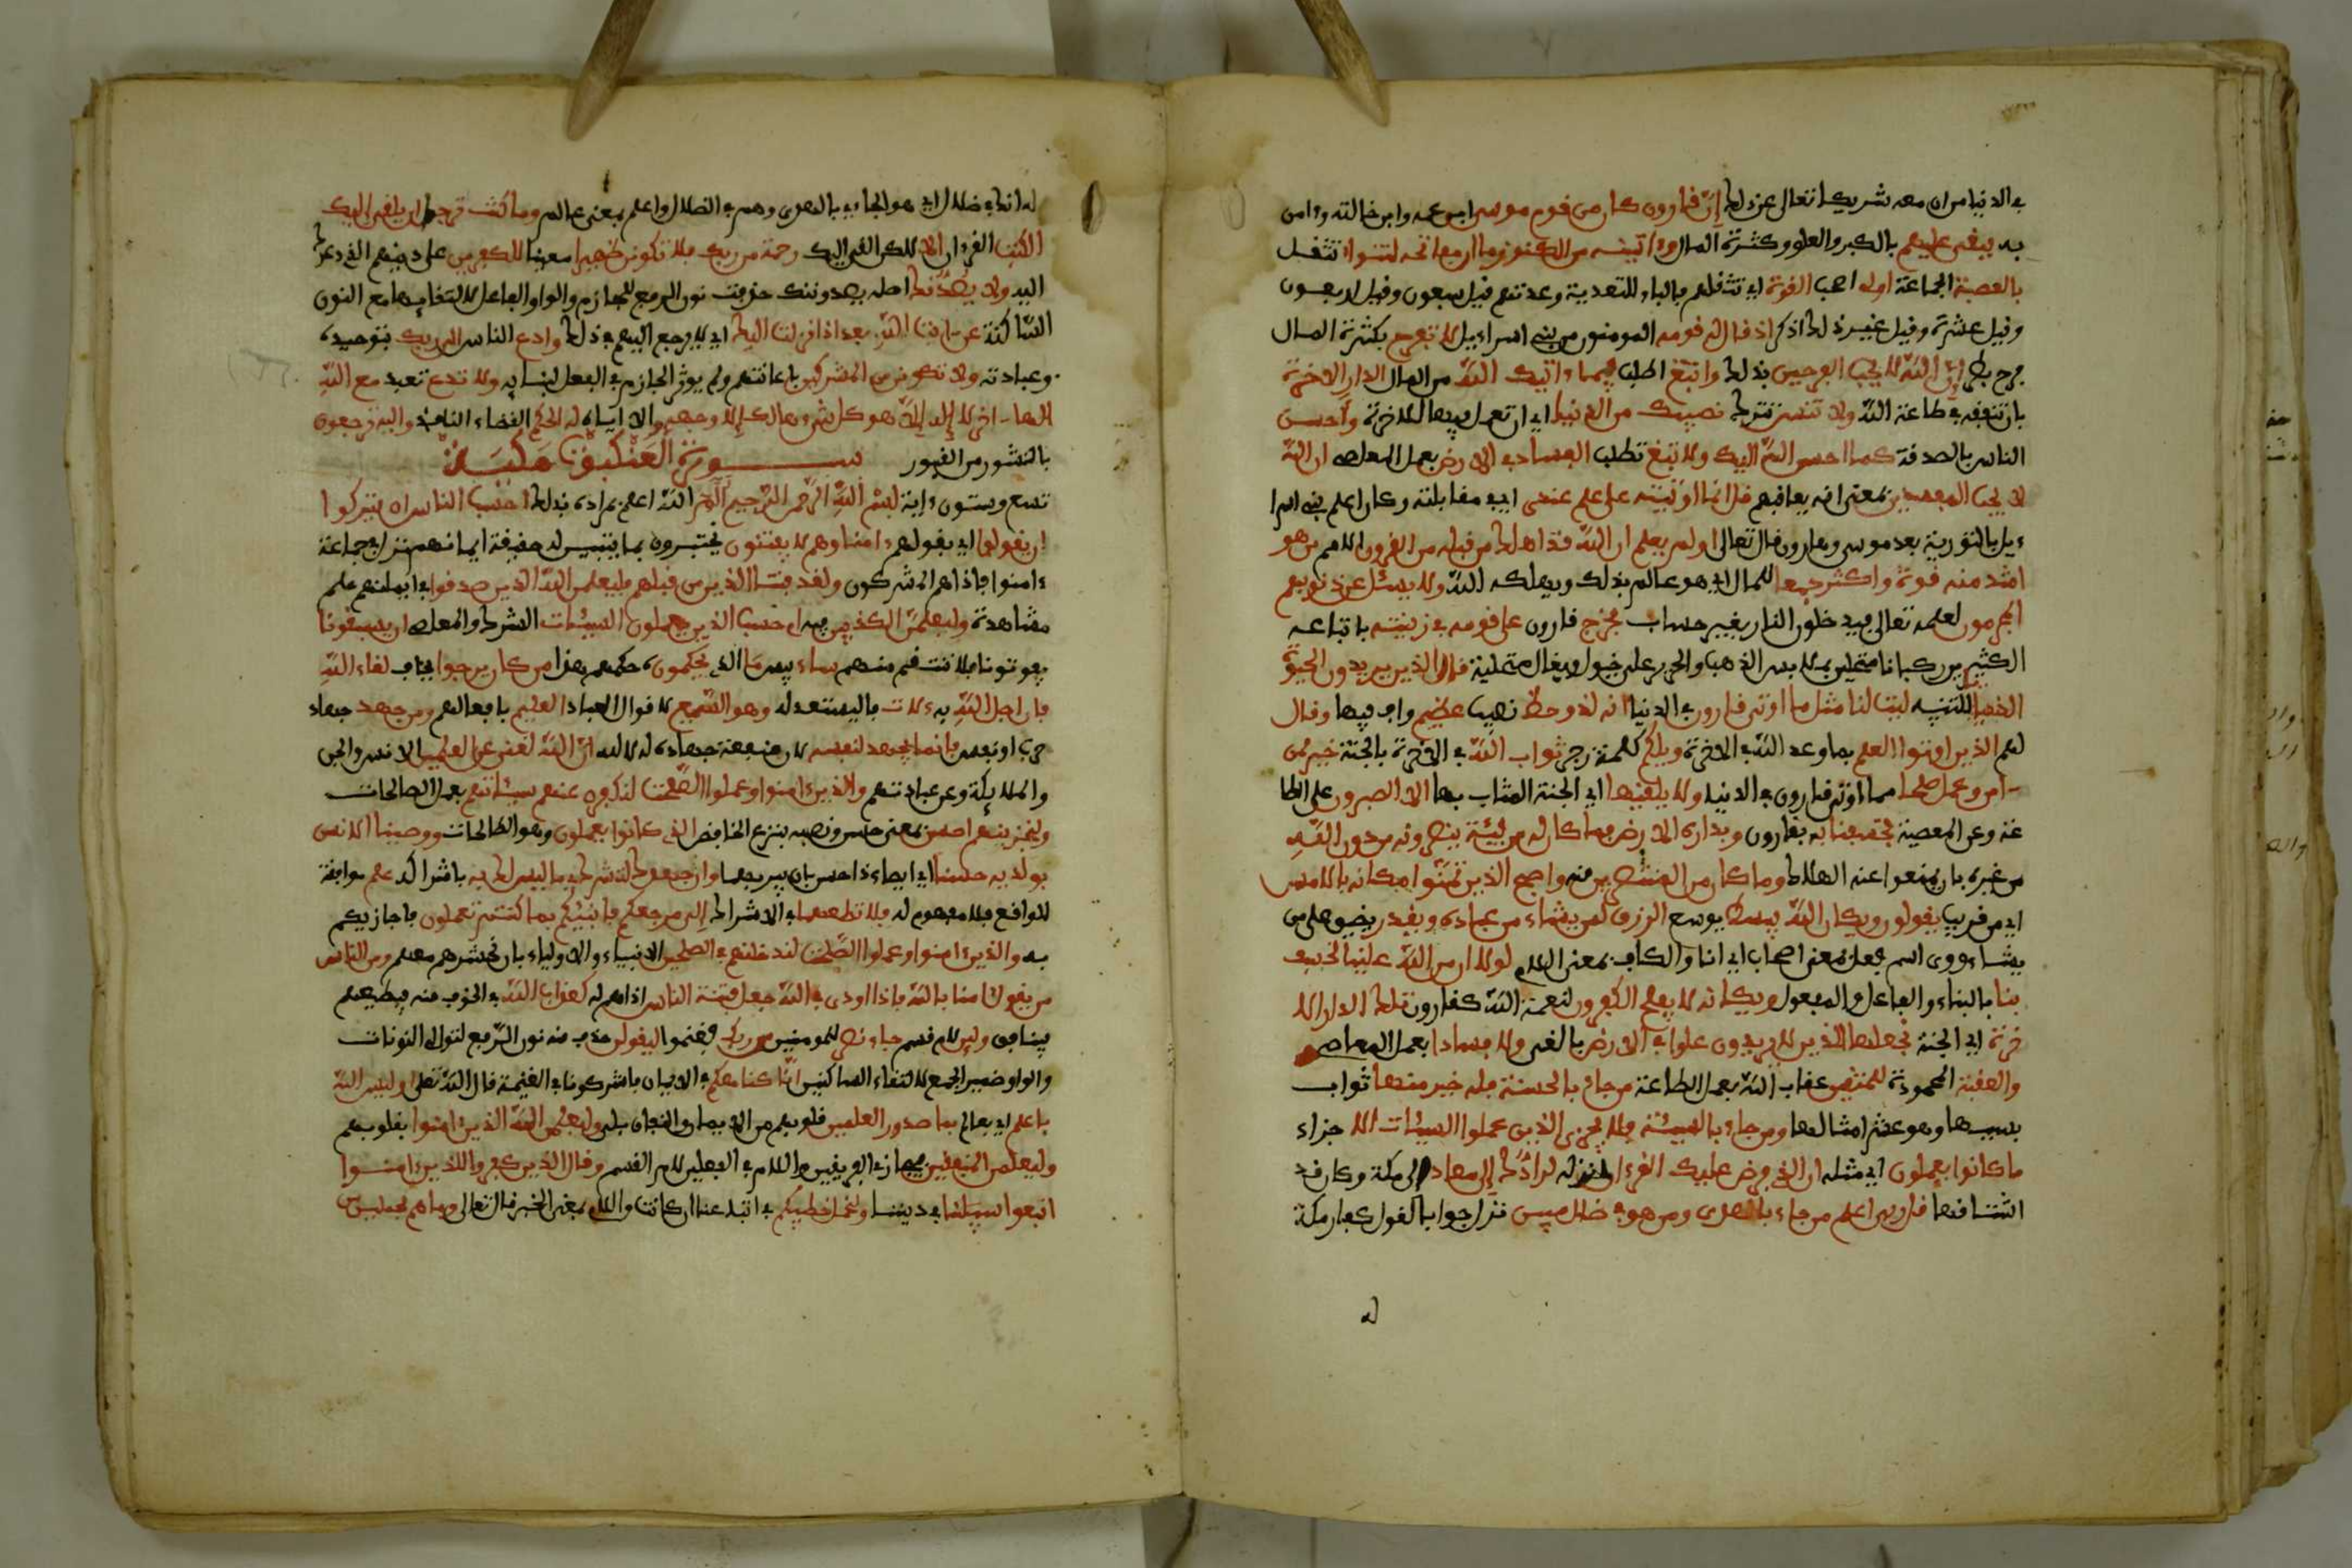 في الدنيا من ان معه شريكا تعالى عن ذلك إن قارون كان من قوم موسى ابن عمه وابن خالته وءامن
به فبغى عليهم بالكبر والعلو وكثرة المال وءاتينه من الكنوز ما ان مفاتحه لتنوأ تثقل
بالعصبة الجماعة اولى اصحب القوة اي تثقلهم فالباء للتعدية وعدتهم قيل سبعون وقيل اربعون
وقيل عشرة وقيل غير ذلك اذكر اذ قال له قومه المومنون من بنى اسراءيل لا تفرح بكثرة المال
فرح بطر ان الله لا يحب الفرحين بذلك وابتغ اطلب فيما ءاتيك الله من المال الدار الاخرة
بان تنفقه في طاعة الله ولا تنس تترك نصيبك من الدنيا اي ان تعمل فيها للاخرة وأحسن
الناس بالصدقة كما احسن الله اليك ولا تبغ تطلب الفساد في الارض بعمل المعاصي ان الله
لا يحب المفسدين بمعنى انه يعاقبهم قال انما اوتيته على علم عندى اي في مقابلته وكان اعلم بنى اسرا
ءيل بالتورية بعد موسى وهارون قال تعالى اولم يعلم ان الله قد اهلك من قبله من القرون الامم من هو
اشد منه قوة واكثر جمعا للمال اي هو عالم بذلك ويهلكه الله ولا يسئل عن ذنوبهم
المجرمون لعلمه تعالى فيدخلون النار بغير حساب فخرج قارون على قومه في زينته باتباعه
الكثيرين ركبانا متحلين بملابس الذهب والحرير على خيول وبغال متحلية قال الذين يريدون الحيوة
الدنيا للتنبيه ليت لنا مثل ما اوتي قارون في الدنيا انه لذو حظ نصيب عظيم واف فيها وقال
لهم الذين اوتوا العلم بما وعد الله في الاخرة ويلكم كلمة زجر ثواب الله في الاخرة بالجنة خير لمن
ءامن وعمل صلحا مما اوتي قارون في الدنيا ولا يلقيها اي الجنة المثاب بها الا الصبرون على الطا
عة وعن المعصية فخسفنا به بقارون وبداره الارض فما كان له من فئة ينصرونه من دون الله
من غيره بان يمنعوا عنه الهلاك وما كان من المنتصرين منه واصبح الذين تمنوا مكانه بالامس
اي من قريب يقولون ويكان الله يبسط يوسع الرزق لمن يشاء من عباده ويقدر يضيق على من
يشاء ووى اسم فعل بمعنى اعجب اي انا والكاف بمعنى اللام لولا ان من الله علينا لخسف
بنا بالبناء للفاعل والمفعول ويكانه لا يفلح الكفرون لنعمة الله كقارون تلك الدار الا
خرة اي الجنة نجعلها للذين لا يريدون علوا في الارض بالبغى ولا فسادا بعمل المعاصي
والعقبة المحمودة للمتقين عقاب الله بعمل الطاعة من جاء بالحسنة فله خير منها ثواب
بسببها وهو عشر امثالها ومن جاء بالسيئة فلا يجزى الذين عملوا السيئات الا جزاء
ما كانوا يعملون اي مثله ان الذي فرض عليك القرءان انزله لرادك إلى معاد الى مكة وكان قد
اشتاقها قل ربى اعلم من جاء بالهدى ومن هو في ضلل مبين نزل جوابا لقول كفار مكة
له
له انك في ضلال اي هو الجاءي بالهدى وهم في الضلال واعلم بمعنى عالم وما كنت ترجوا ان يلقى اليك
الكتب القرءان الا لكن القي اليك رحمة من ربك فلا تكونن ظهيرا معينا للكفرين على دينهم الذي دعوك
اليه ولا يصدنك اصله يصدوننك حذفت نون الرفع للجازم والواو الفاعل لالتقايها مع النون
الساكنة عن ءايت الله بعد اذ انزلت اليك اي لا ترجع اليهم في ذلك وادع الناس الى ربك بتوحيده
وعبادته ولا تكونن من المشركين باعانتهم ولم يوثر الجازم في الفعل لبنايه ولا تدع تعبد مع الله
الها ءاخر لا إله إلا هو كل شيء هالك إلا وجهه الا اياه له الحكم القضاء النافذ واليه ترجعون
بالنشور من القبور سورة العنكبوت مكية
تسع وستون ءاية بسم الله الرحمن الرحيم آلم الله اعلم بمراده بذلك احسب الناس ان يتركوا
ان يقولوا اي بقولهم ءامنا وهم لا يفتنون يختبرون بما يتبين به حقيقة ايمانهم نزل في جماعة
ءامنوا فاذاهم المشركون ولقد فتنا الذين من قبلهم فليعلمن الله الذين صدقوا في ايمانهم علم
مشاهدة وليعلمن الكذبين فيه ام حسب الذين يعملون السيئات الشرك والمعاصي ان يسبقونا
يفوتونا فلا ننتقم منهم ساء بيس ما الذي يحكمون ه حكمهم هذا من كان يرجوا يخاف لقاء الله
فان اجل الله به ءلات فاليستعد له وهو السميع لاقوال العباد العليم بافعالهم ومن جهد جهاد
حرب او نفس فانما يجهد لنفسه لان منفعة جهاده له لا لله ان الله لغنى عن العلمين الانس والجن
والملايكة وعن عبادتهم والذين ءامنوا وعملوا الصلحت لنكفرن عنهم سيئاتهم بعمل الصالحات
ولنجزينهم احسن بمعنى حسن ونصبه بنزع الخافض الذي كانوا يعملون وهو الصالحات ووصينا الانسن
بوالديه حسنا اي ايصاء ذا حسن بان يبرهما وان جهدك لتشرك بي ما ليس لك به باشراكه علم موافقة
للواقع فلا مفهوم له فلا تطعهما في الاشراك إلى مرجعكم فانبئكم بما كنتم تعملون فاجازيكم
به والذين ءامنوا وعملوا الصلحت لندخلنهم في الصلحين الانبياء والاولياء بان نحشرهم معهم ومن الناس
من يقول ءامنا بالله فاذا اوذى في الله جعل فتنة الناس اذاهم له كعذاب الله في الخوف منه فيطيعهم
فينافق ولين لام قسم جاء نصر للمومنين من ربك فغنموا ليقولن حذف منه نون الرفع لتوالي النونات
والواو ضمير الجمع لالتقاء الساكنين انا كنا معكم في الايمان فاشركونا في الغنيمة قال الله تعلى اوليس الله
باعلم اي بعالم بما في صدور العلمين قلوبهم من الايمان والنفاق بلى وليعلمن الله الذين ءامنوا بقلوبهم
وليعلمن المنفقين فيجازي الفريقين واللام في الفعلين لام القسم وقال الذين كفروا للذين ءامنوا
اتبعوا سبيلنا في ديننا ولنحمل خطيكم في اتباعنا ان كانت والامر بمعنى الخبر قال تعالى وما هم بحملين من